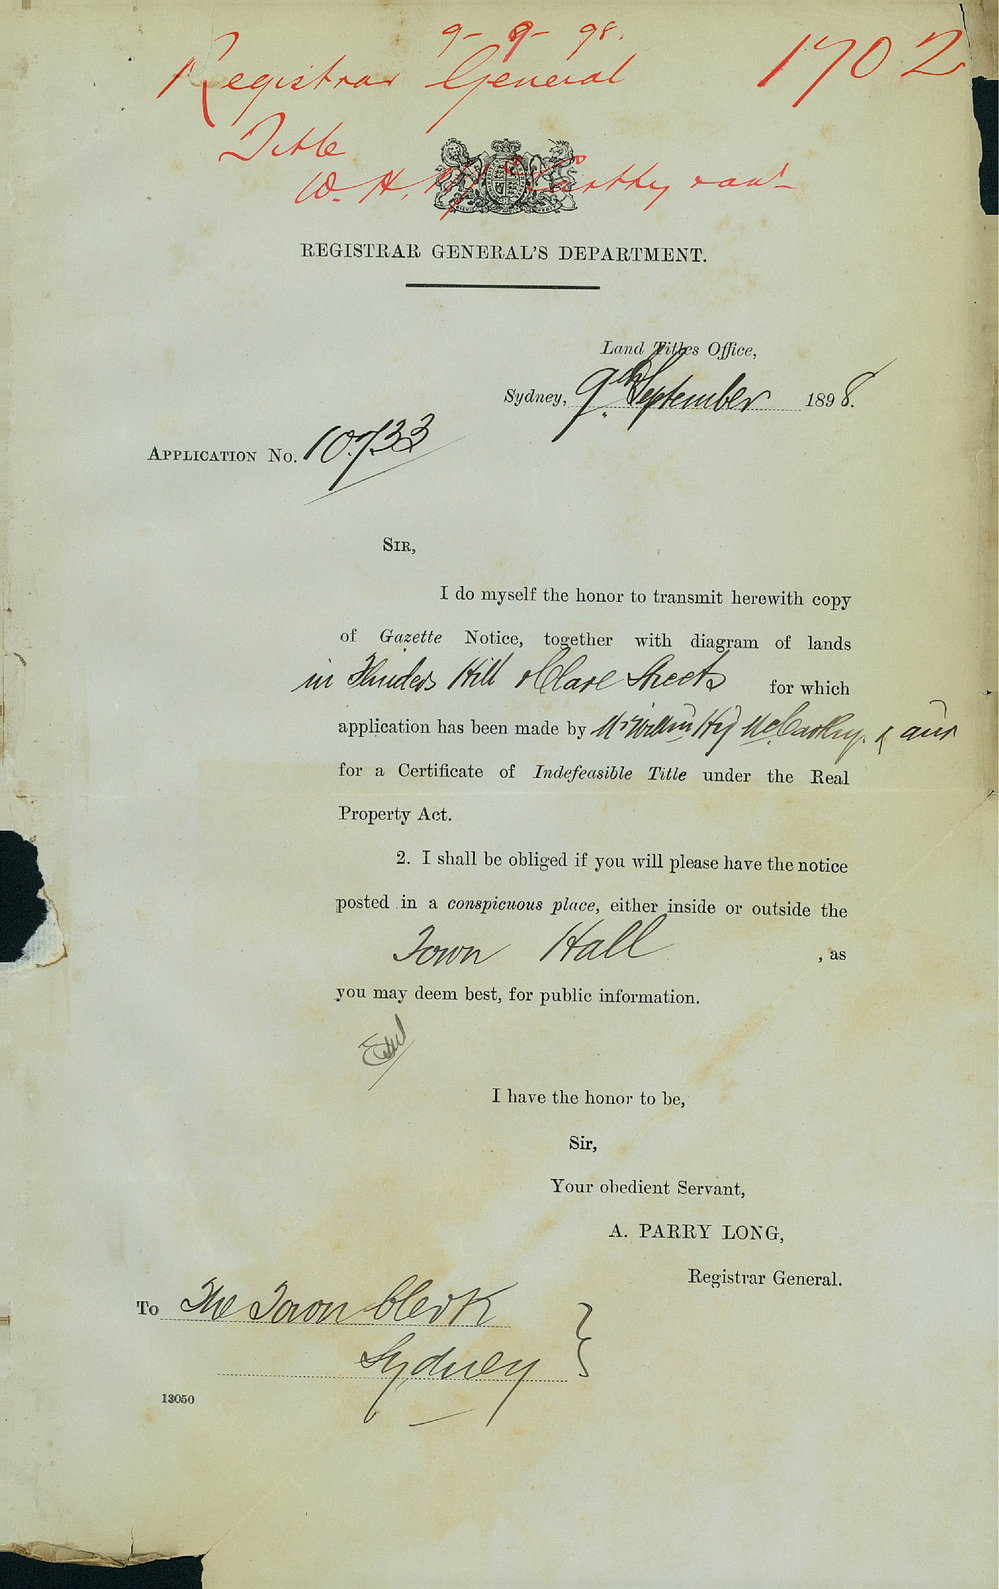 9-9-98.
Registrar General 1702
Title
W. H. McCarthy & anr
REGISTRAR GENERAL'S DEPARTMENT.
Land Titles Office,
Sydney, 9th September 1898.
APPLICATION No. 10733
SIR,
I do myself the honor to transmit herewith copy
of Gazette Notice, together with diagram of lands
in Flinders Hill & Clare Streets for which
application has been made by Mr William Hy McCarthy & anr
for a Certificate of Indefeasible Title under the Real
Property Act.
2. I shall be obliged if you will please have the notice
posted in a conspicuous place, either inside or outside the
Town Hall , as
you may deem best, for public information.
I have the honor to be,
Sir,
Your obedient Servant,
A. PARRY LONG,
Registrar General.
To The Town Clerk
Sydney
13050